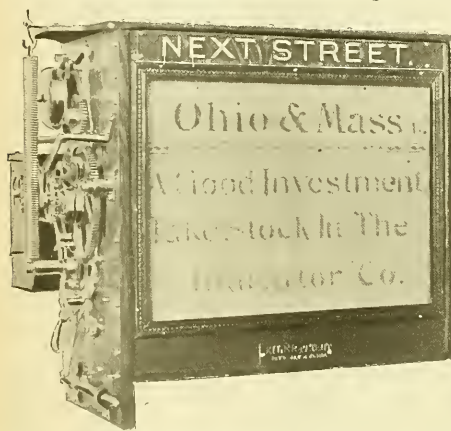 NEXT STREET.
Ohio & Mass
A Good Investment
Take Stock In The
Indicator Co.